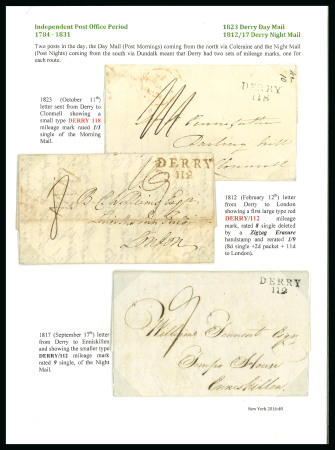 Independent Post Office Period
1784 - 1831
1823 Derry Day Mail
1812/17 Derry Night Mail
Two posts in the day, the Day Mail (Post Mornings) coming from the north via Coleraine and the Night Mail
(Post Nights) coming from the south via Dundalk meant that Derry had two sets of mileage marks, one for
each route.
1823 (October 11th)
letter sent from Derry to
Clonmell showing a
small type DERRY 118
mileage mark rated 1/1
single of the Morning
Mail.
DERRY
118
Clonmell
DERRY
112
8
London
1812 (February 12th) letter
from Derry to London
showing a first large type red
DERRY/112 mileage
mark, rated 8 single deleted
by a Zigzag Erasure
handstamp and rerated 1/9
(8d single +2d packet + 11d
to London).
DERRY
112
9
House
Enniskillen
1817 (September 17th) letter
from Derry to Enniskillen
and showing the smaller type
DERRY/112 mileage mark
rated 9 single, of the Night
Mail.
New York 2016:40